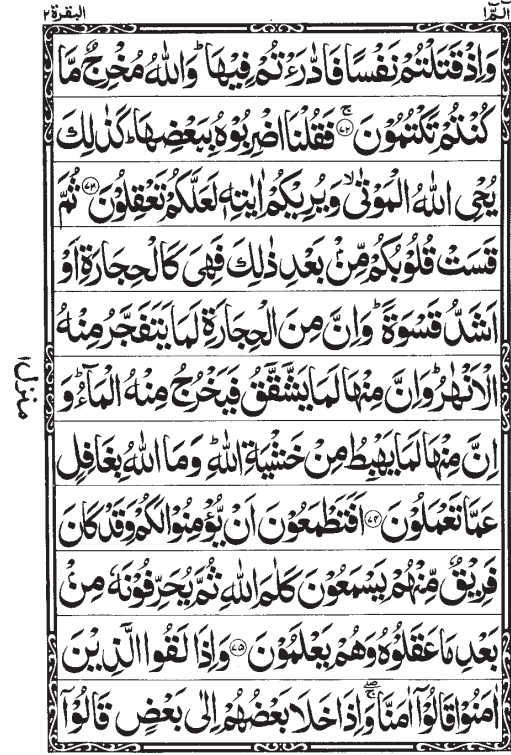 الٓمّٓ ١
البقرة ٢
وَاِذْ قَتَلْتُمْ نَفْسًا فَادّٰرَءْتُمْ فِيْهَا ؕ وَاللّٰهُ مُخْرِجٌ مَّا
كُنْتُمْ تَكْتُمُوْنَ ۚ﴿۷۲﴾ فَقُلْنَا اضْرِبُوْهُ بِبَعْضِهَا ؕ كَذٰلِكَ
يُحْيِ اللّٰهُ الْمَوْتٰى ۙ وَيُرِيْكُمْ اٰيٰتِهٖ لَعَلَّكُمْ تَعْقِلُوْنَ ﴿۷۳﴾ ثُمَّ
قَسَتْ قُلُوْبُكُمْ مِّنْۢ بَعْدِ ذٰلِكَ فَهِىَ كَالْحِجَارَةِ اَوْ
اَشَدُّ قَسْوَةً ؕ وَاِنَّ مِنَ الْحِجَارَةِ لَمَا يَتَفَجَّرُ مِنْهُ
الْاَنْهٰرُ ؕ وَاِنَّ مِنْهَا لَمَا يَشَّقَّقُ فَيَخْرُجُ مِنْهُ الْمَآءُ ؕ وَ
اِنَّ مِنْهَا لَمَا يَهْبِطُ مِنْ خَشْيَةِ اللّٰهِ ؕ وَمَا اللّٰهُ بِغَافِلٍ
عَمَّا تَعْمَلُوْنَ ﴿۷۴﴾ اَفَتَطْمَعُوْنَ اَنْ يُّؤْمِنُوْا لَكُمْ وَقَدْ كَانَ
فَرِيْقٌ مِّنْهُمْ يَسْمَعُوْنَ كَلٰمَ اللّٰهِ ثُمَّ يُحَرِّفُوْنَهٗ مِنْۢ
بَعْدِ مَا عَقَلُوْهُ وَهُمْ يَعْلَمُوْنَ ﴿۷۵﴾ وَاِذَا لَقُوا الَّذِيْنَ
اٰمَنُوْا قَالُوْٓا اٰمَنَّا ۖۚ وَاِذَا خَلَا بَعْضُهُمْ اِلٰى بَعْضٍ قَالُوْٓا
منزل ١